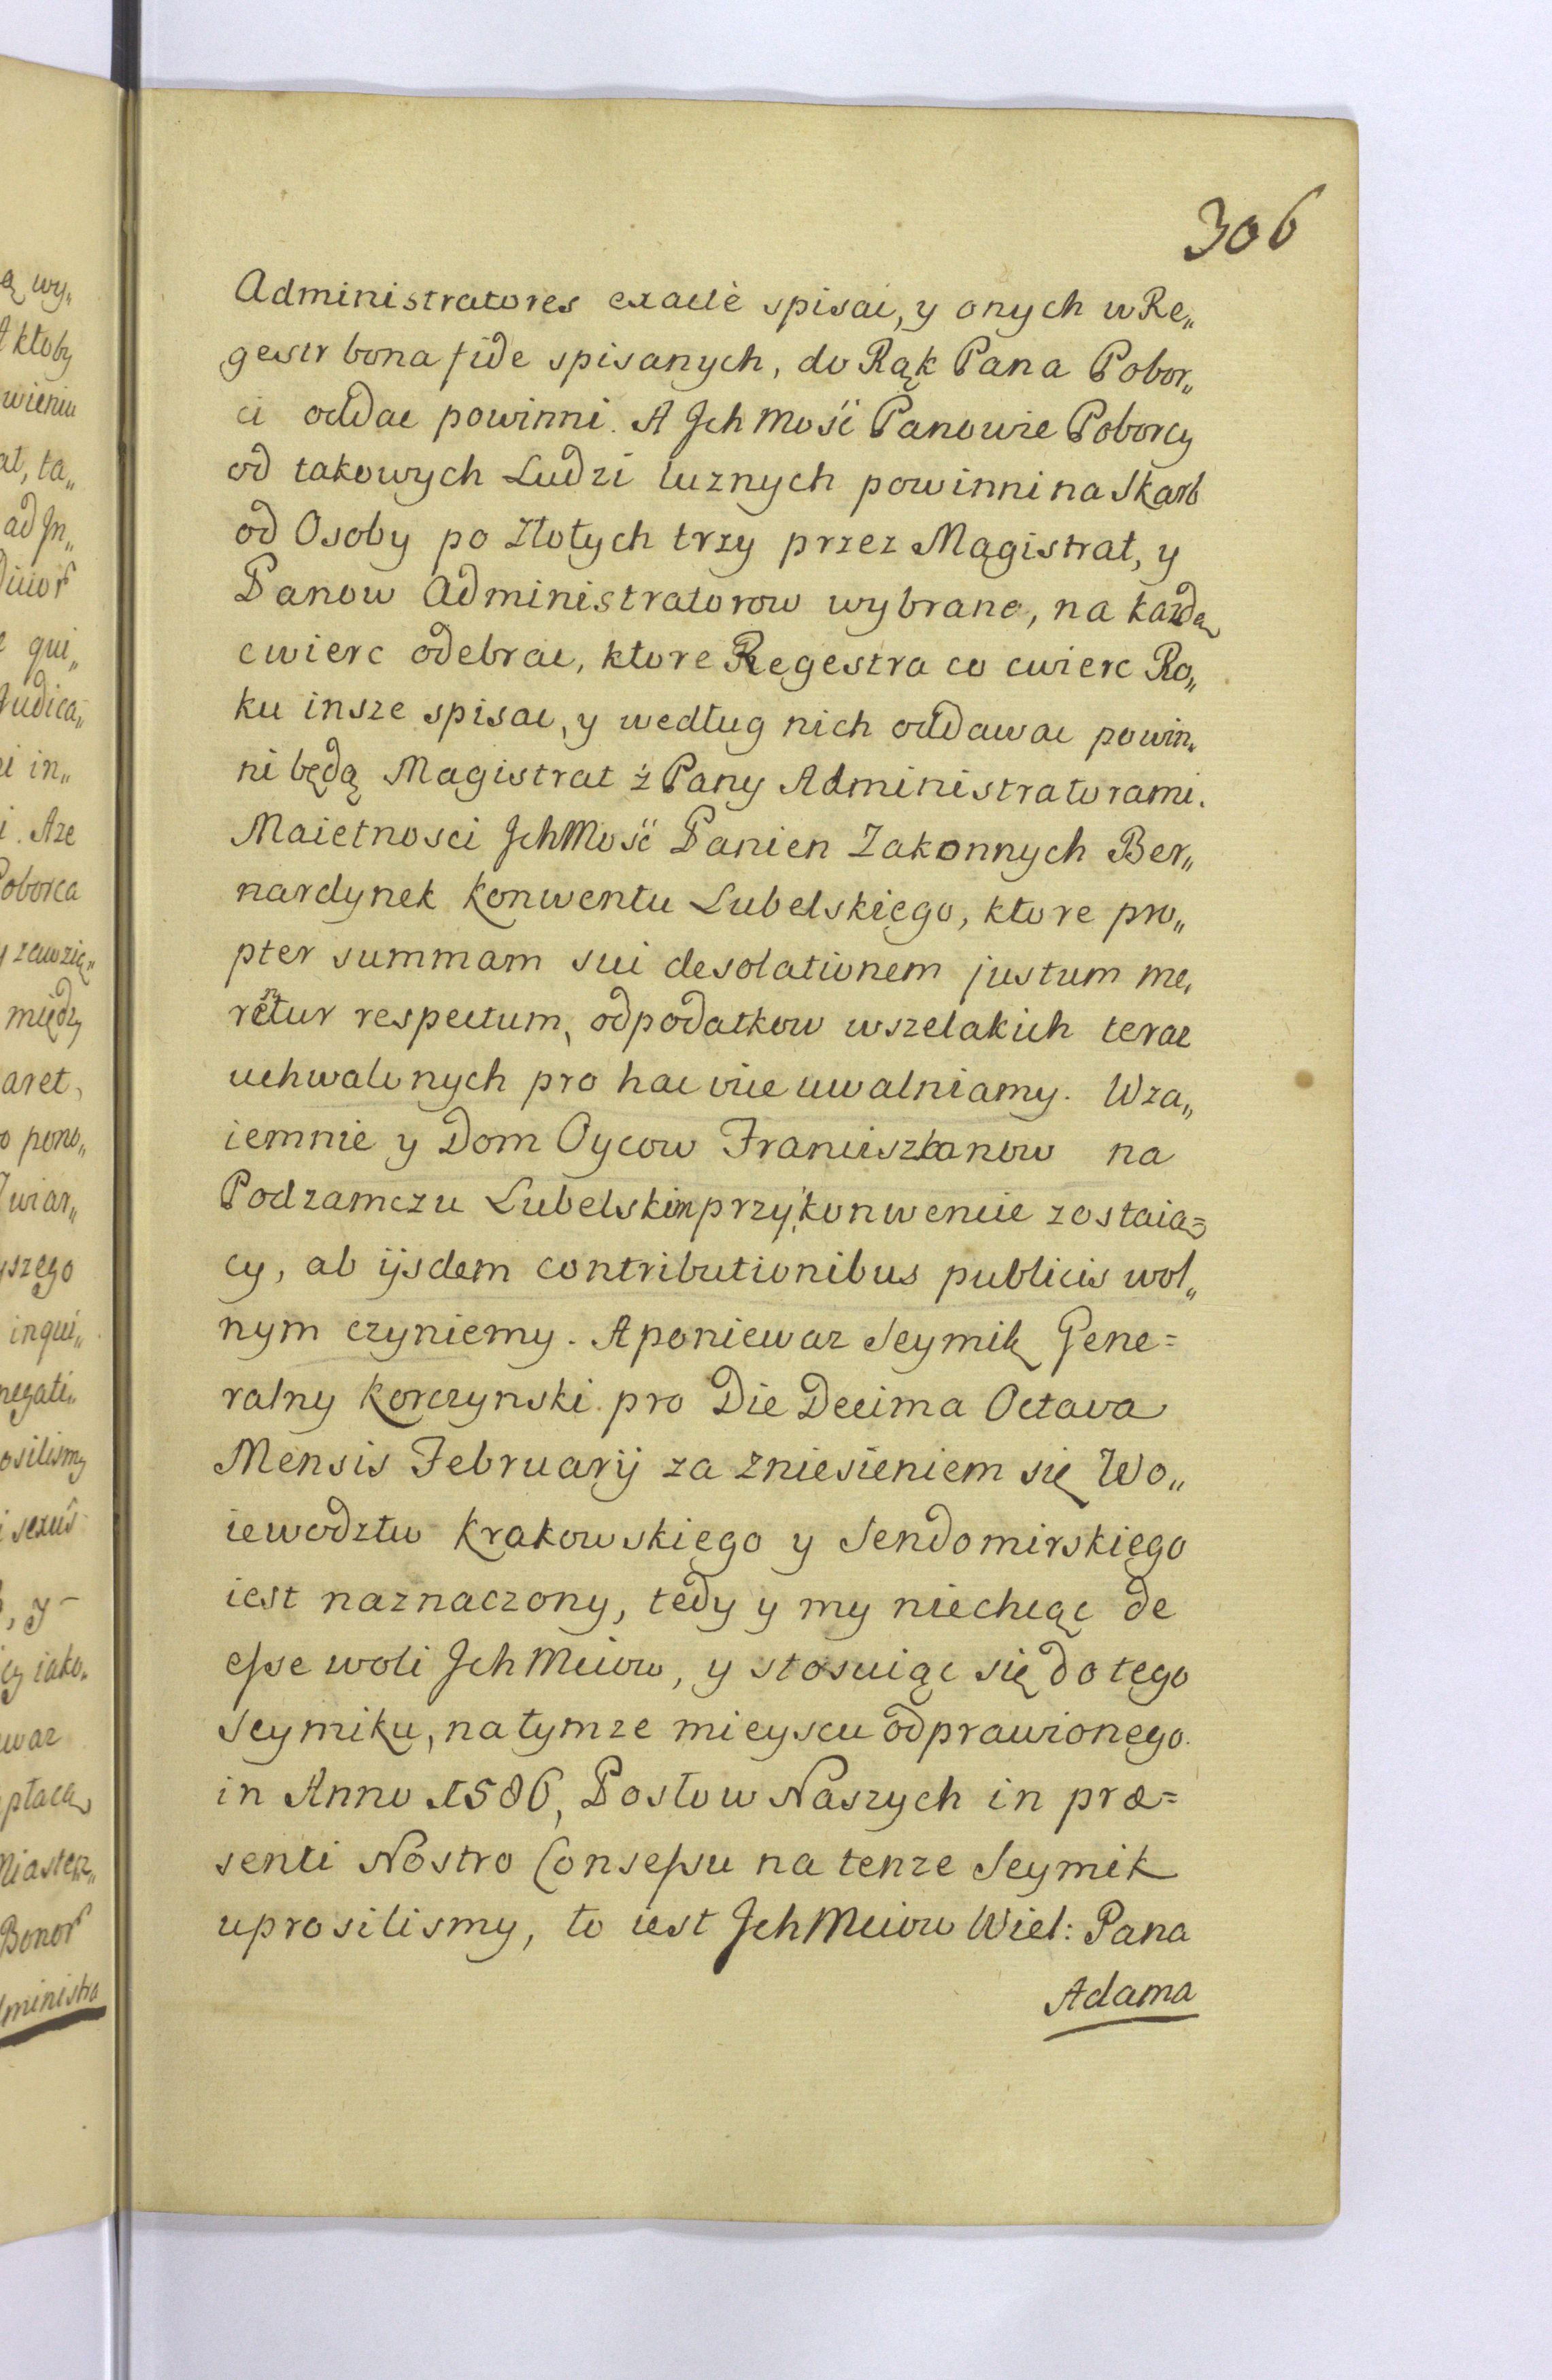 306
Administratores exactè spisac, y onych w Re„
gestr bona fide spisanych, do Rąk Pana Pobor„
ci oddac powinni. A Jch Mość Panowie Poborcy
od takowych Ludzi luznych powinni na Skarb
od Osoby po Złotych trzy przez Magistrat, y
Panow Administratorow wybrane, na kazdą
cwierc odebrac, ktore Regestra co cwierc Ro„
ku insze spisac, y według nich oddawac powin„
ni będą Magistrat z Pany Administratorami.
Maietnosci JchMość Panien Zakonnych Ber„
nardynek Konwentu Lubelskiego, ktore pro„
pter summam sui desolationem justum me„
rentur respectum, od podatkow wszelakich teraz
uchwalonych pro hac vice uwalniamy. Wza„
iemnie y Dom Oycow Franciszkanow na
Podzamczu Lubelskim przy konwencie zostaią=
cy, ab ijsdem contributionibus publicis wol„
nym czyniemy. A poniewaz Seymik Gene=
ralny Korczynski pro Die Decima Octava
Mensis Februarij za zniesieniem się Wo„
iewodztw Krakowskiego y Sendomirskiego
iest naznaczony, tedy y my niechcąc de
esse woli Jch Mciow, y stosuiąc się do tego
Seymiku, na tymze mieyscu odprawionego
in Anno 1586, Posłow Naszych in præ=
senti Nostro Consessu na tenze Seymik
uprosilismy, to iest Jch Mciow Wiel: Pana
Adama
ą wy„
A ktoby
wieniu
at, ta„
ad Jn„
qui„
Judica„
i in„
i. Aze
Poborca
y zawzię„
między
aret,
o pono„
yszego
inqui„
negati„
osilismy
i sexûs
, y
cy iako„
waz
płacą
Miastecz„
Bonor
dministra